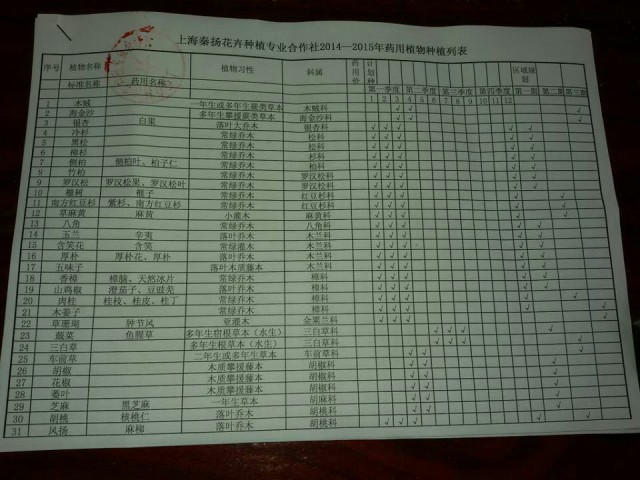 上海秦扬花卉种植专业合作社2014—2015年药用植物种植列表
序号 植物名称 植物习性 科属 药用价 计划种 区域规划
标准名称 药用名称 第一季度 第二季度 第三季度 第四季度 第一期 第二期 第三期
1 2 3 4 5 6 7 8 9 10 11 12
1 木贼 一年生或多年生蕨类草本 木贼科 √ √ √
2 海金沙 多年生攀援蕨类草本 海金沙科 √ √ √
3 银杏 白果 落叶大乔木 银杏科 √ √ √ √ √
4 冷杉 常绿乔木 松科 √ √ √ √ √
5 黑松 常绿乔木 松科 √ √ √ √ √
6 柳杉 常绿乔木 杉科 √ √ √ √ √
7 侧柏 侧柏叶、柏子仁 常绿乔木 柏科 √ √ √ √ √
8 竹柏 常绿乔木 罗汉松科 √ √ √ √ √
9 罗汉松 罗汉松果、罗汉松叶 常绿乔木 罗汉松科 √ √ √ √ √
10 榧树 榧子 常绿乔木 红豆杉科 √ √ √ √
11 南方红豆杉 紫杉、南方红豆杉 常绿乔木 红豆杉科 √ √ √ √
12 草麻黄 麻黄 小灌木 麻黄科 √ √ √ √
13 八角 常绿乔木 八角科 √ √ √ √
14 玉兰 辛夷 落叶乔木 木兰科 √ √ √ √ √
15 含笑花 含笑 常绿灌木 木兰科 √ √ √ √ √
16 厚朴 厚朴花、厚朴 落叶乔木 木兰科 √ √ √
17 五味子 落叶木质藤本 木兰科 √ √ √
18 香樟 樟脑、天然冰片 常绿乔木 樟科 √ √ √ √ √
19 山鸡椒 澄茄子、豆豉壳 落叶乔木 樟科 √ √ √
20 肉桂 桂枝、桂皮、桂丁 常绿乔木 樟科 √ √ √
21 木姜子 常绿乔木 樟科 √ √ √
22 草珊瑚 肿节风 亚灌木 金粟兰科
23 蕺菜 鱼腥草 多年生宿根草本（水生） 三白草科 √ √ √
24 三白草 多年生根草本（水生） 三白草科 √ √ √
25 车前草 二年生或多年生草本 车前草科 √ √
26 胡椒 木质攀援藤本 胡椒科 √ √
27 花椒 木质攀援藤本 胡椒科 √ √
28 蒌叶 木质攀援藤本 胡椒科 √ √
29 芝麻 黑芝麻 一年生草本 胡麻科 √ √
30 胡桃 核桃仁 落叶乔木 胡桃科 √ √
31 风扬 麻柳 落叶乔木 胡桃科 √ √ √